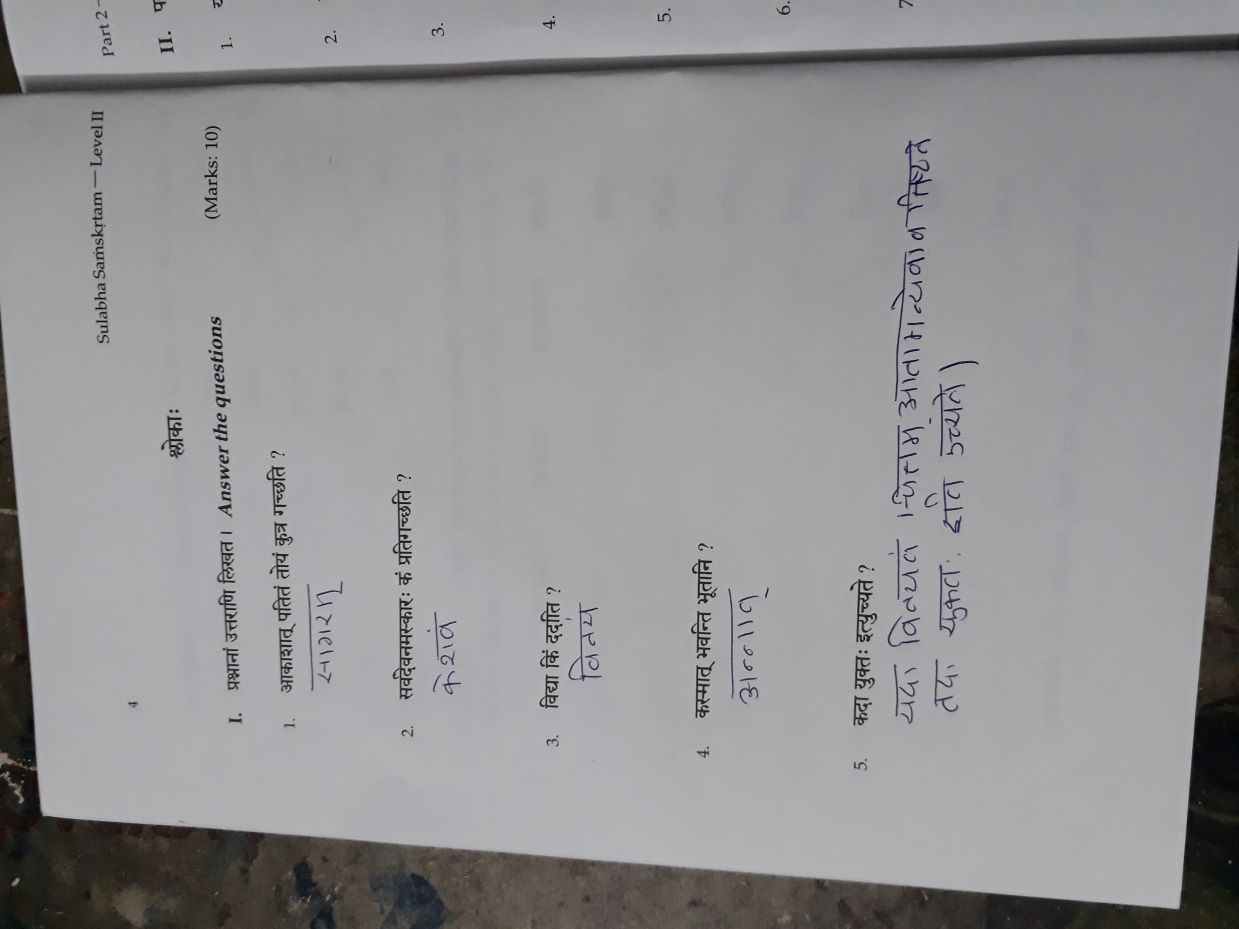 Sulabha Saṁskṛtam — Level II
4
श्लोकाः
I. प्रश्नानां उत्तराणि लिखत। Answer the questions (Marks: 10)
1. आकाशात् पतितं तोयं कुत्र गच्छति ?
सागरम्
2. सर्वदेवनमस्कारः कं प्रतिगच्छति ?
केशवं
3. विद्या किं ददाति ?
विनयं
4. कस्मात् भवन्ति भूतानि ?
अन्नात्
5. कदा युक्तः इत्युच्यते ?
यदा विनयतं चित्तम् आतामन्येवाव तिष्टते
तदा युक्तः इति उच्यते।
Part 2 –
II. प
1. य
2.
3.
4.
5.
6.
7